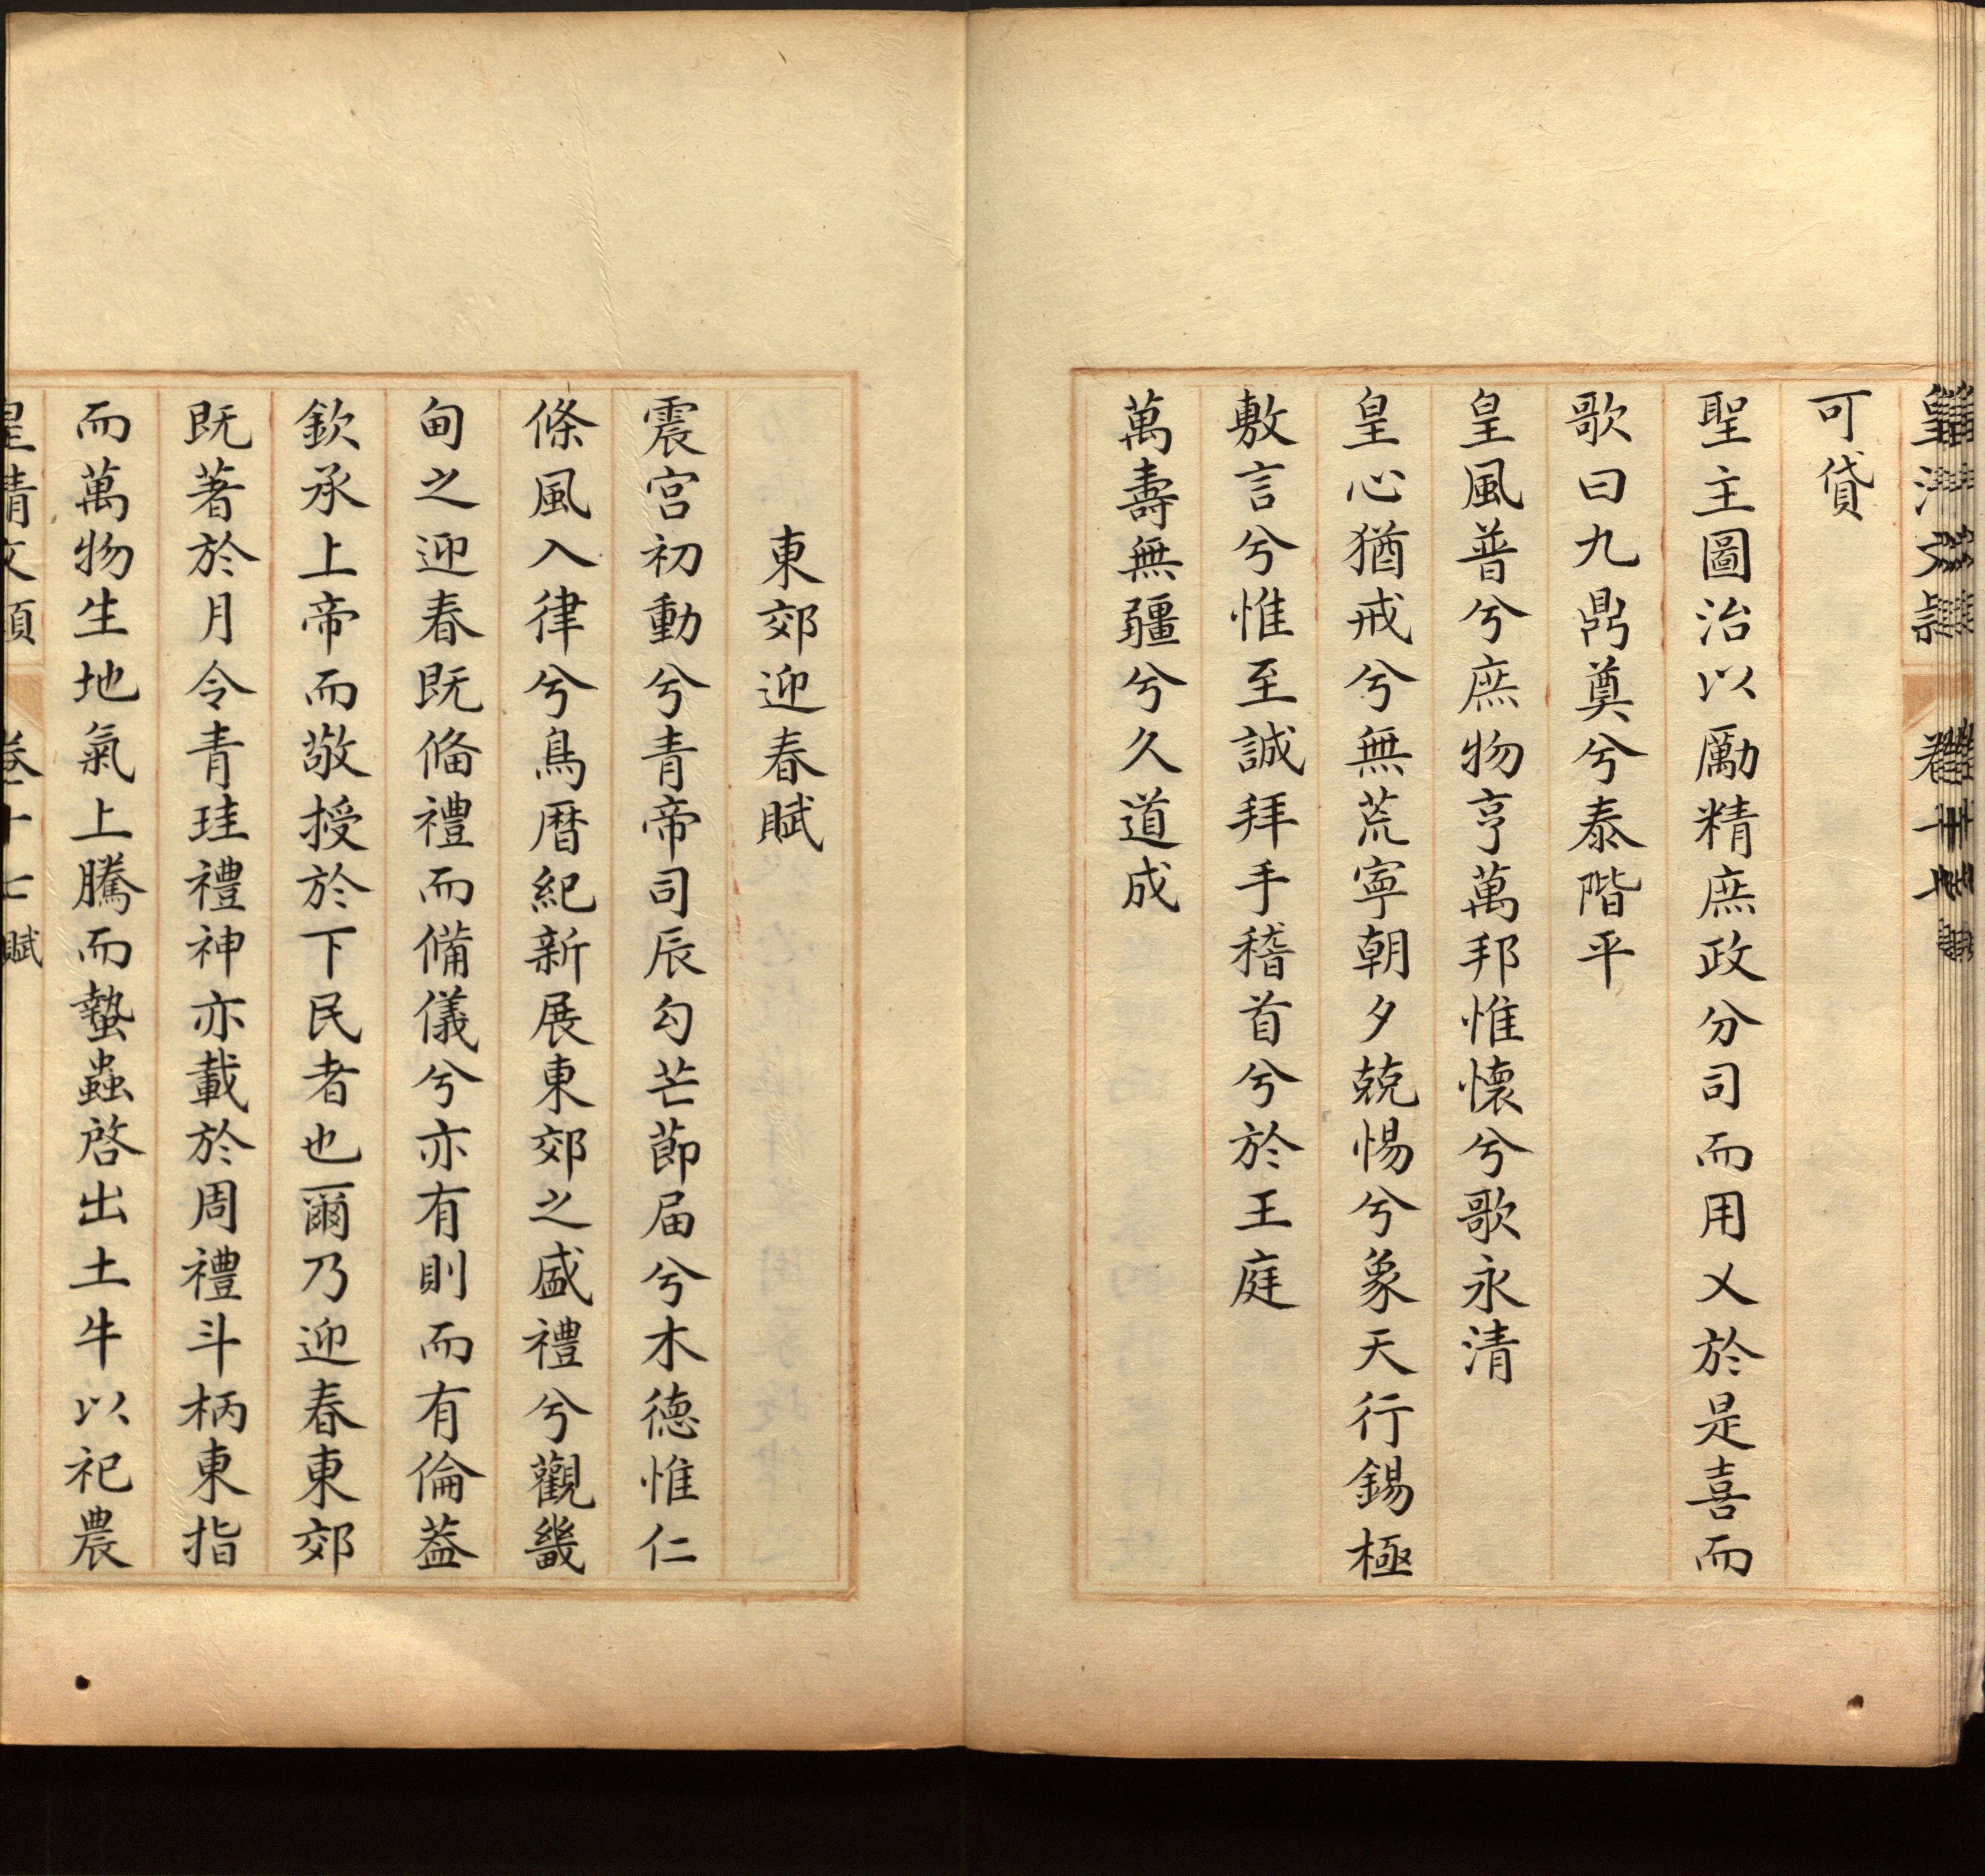 皇清文穎 卷十七
可貸
聖主圖治以勵精庶政分司而用乂於是喜而
歌曰九鼎奠兮泰階平
皇風普兮庶物亨萬邦惟懷兮歌永清
皇心猶戒兮無荒寧朝夕兢惕兮象天行錫極
敷言兮惟至誠拜手稽首兮於王庭
萬壽無疆兮久道成
東郊迎春賦
震宮初動兮青帝司辰勾芒節届兮木德惟仁
條風入律兮鳥曆紀新展東郊之盛禮兮觀畿
甸之迎春既脩禮而備儀兮亦有則而有倫蓋
欽承上帝而敬授於下民者也爾乃迎春東郊
既著於月令青珪禮神亦載於周禮斗柄東指
而萬物生地氣上騰而蟄蟲啓出土牛以祀農
皇清文穎 卷十七 賦